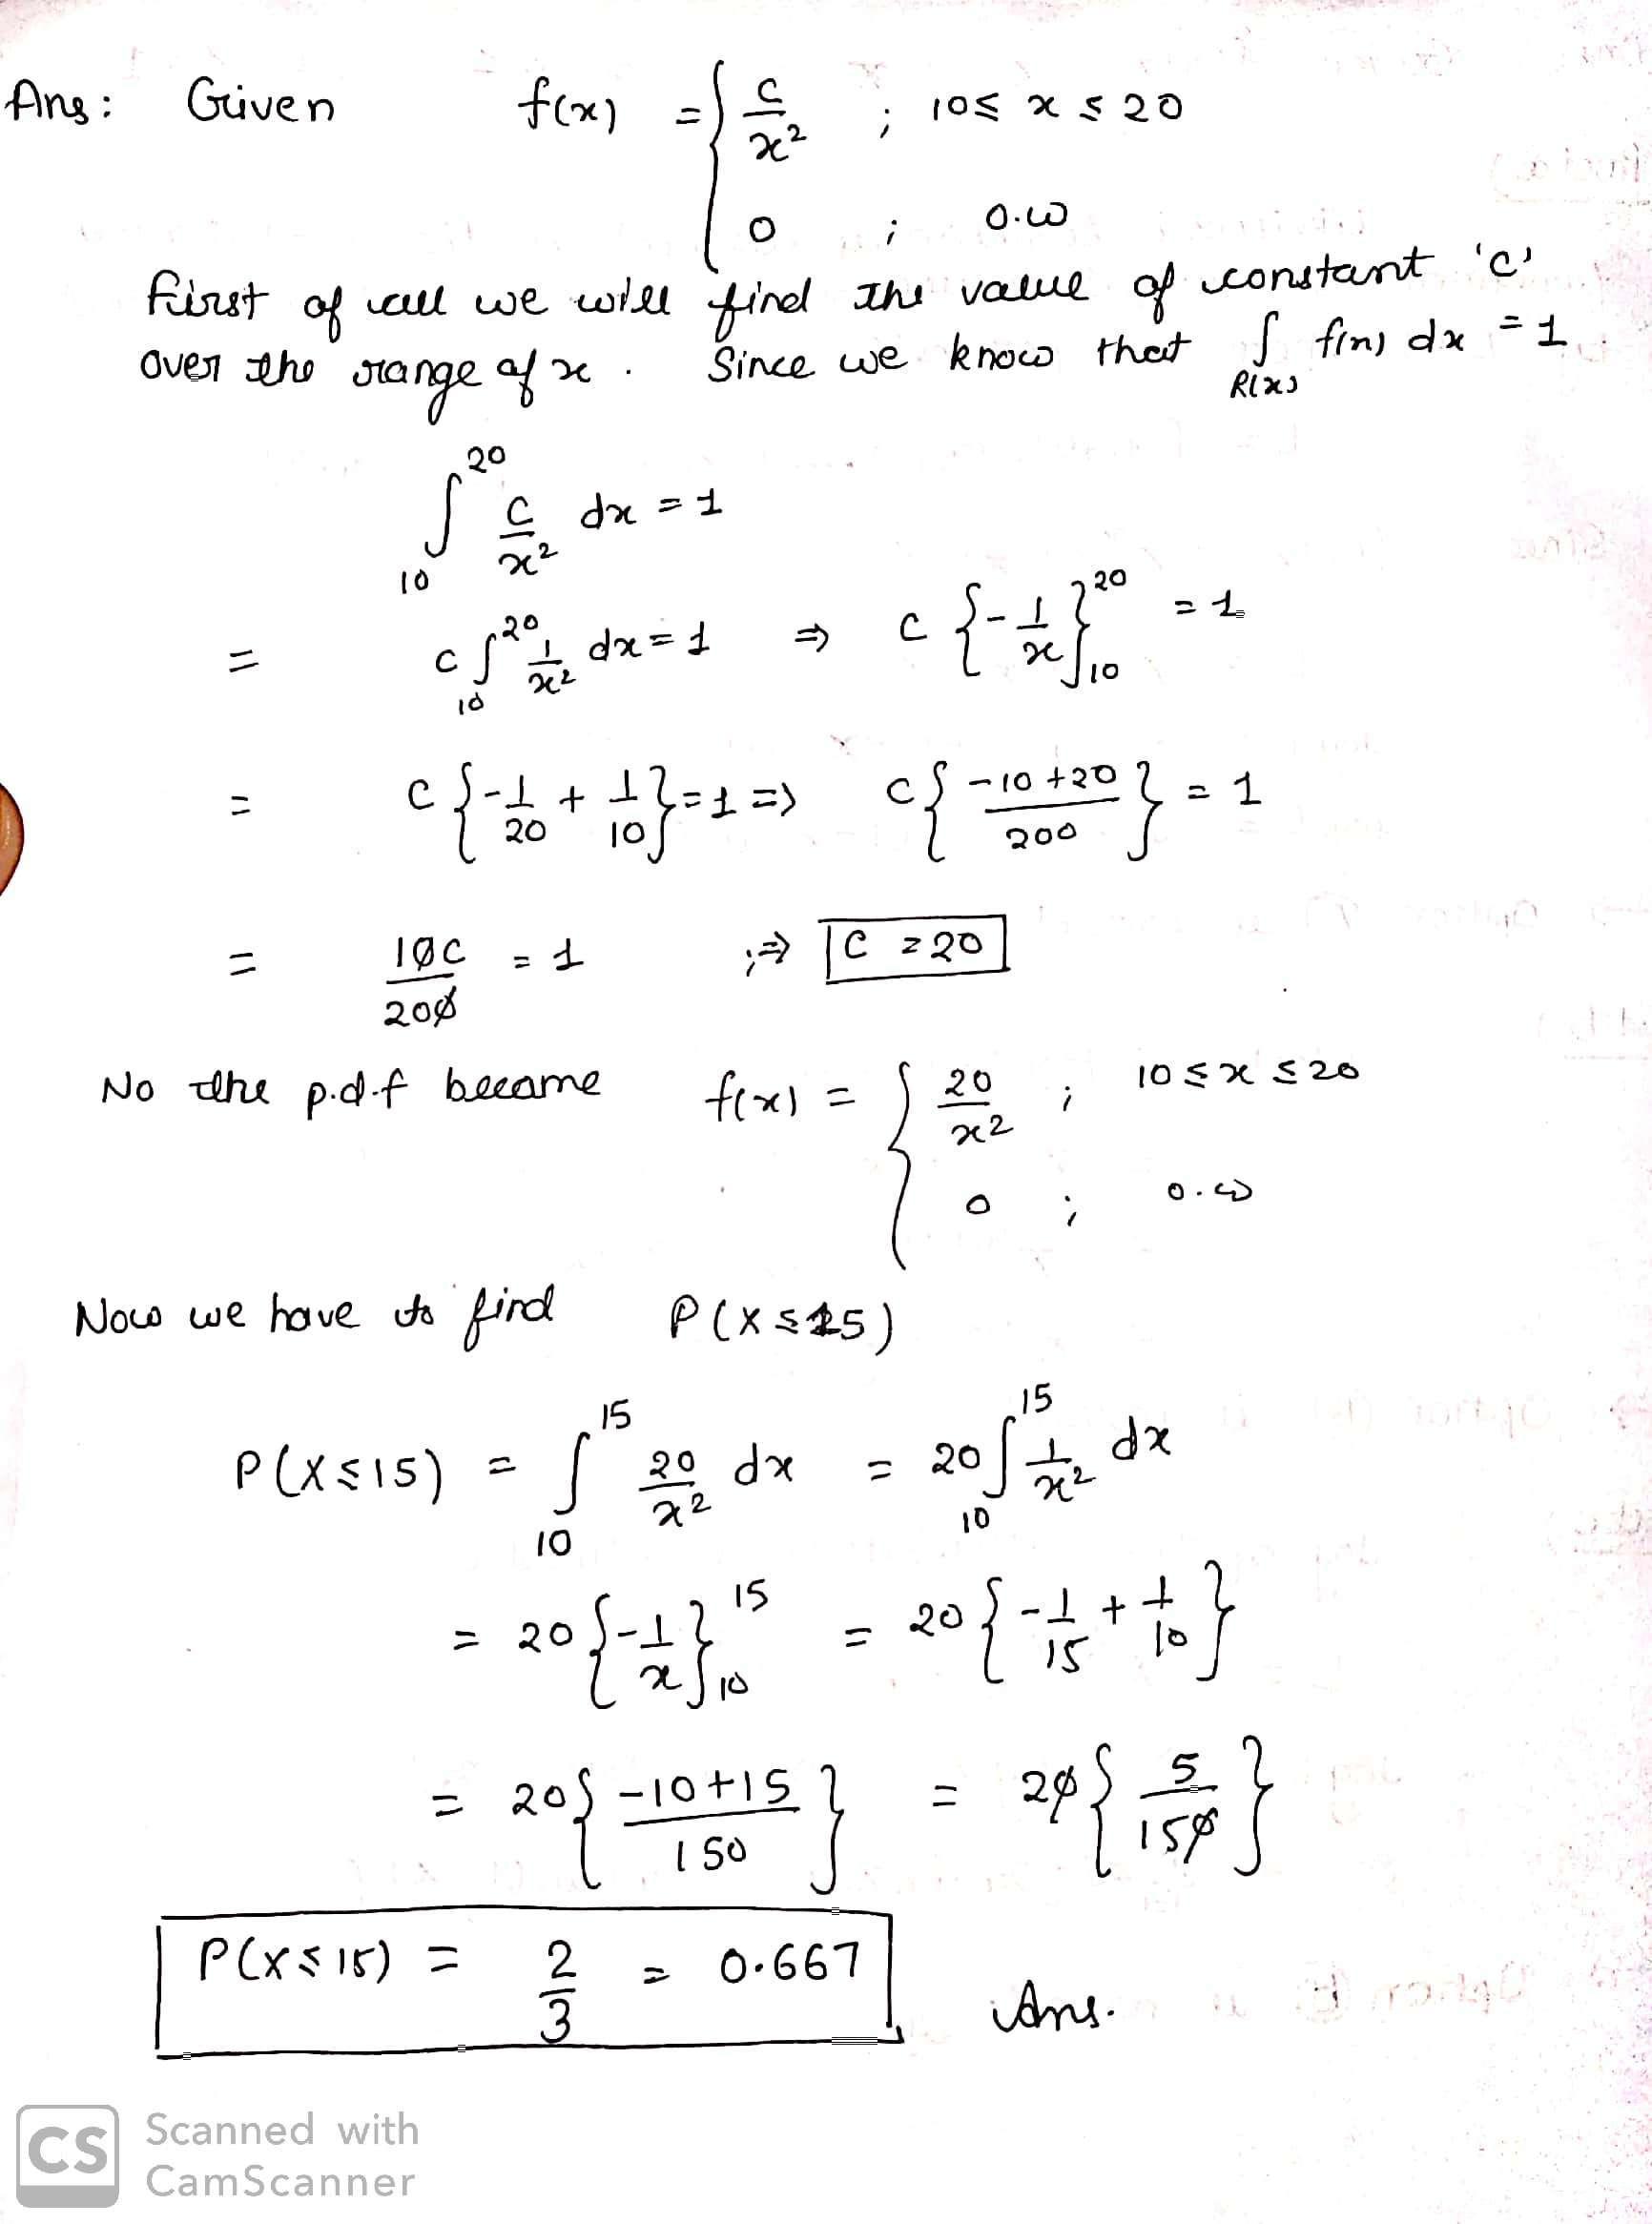 Ans: Given f(x) = { c/x² ; 10 ≤ x ≤ 20
0 ; o.w
first of all we will find the value of constant 'c'
over the range of x. Since we know that ∫R(x) f(x) dx = 1.
∫₁₀²⁰ c/x² dx = 1
= c ∫₁₀²⁰ 1/x² dx = 1 ⇒ c {-1/x}₁₀²⁰ = 1
= c {-1/20 + 1/10} = 1 ⇒ c {(-10+20)/200} = 1
= 10c/200 = 1 ;⇒ C = 20
No the p.d.f became f(x) = { 20/x² ; 10 ≤ x ≤ 20
0 ; o.w
Now we have to find P(X ≤ 15)
P(X ≤ 15) = ∫₁₀¹⁵ 20/x² dx = 20 ∫₁₀¹⁵ 1/x² dx
= 20 {-1/x}₁₀¹⁵ = 20 {-1/15 + 1/10}
= 20 {(-10+15)/150} = 20 {5/150}
P(X ≤ 15) = 2/3 = 0.667 Ans.
CS Scanned with
CamScanner